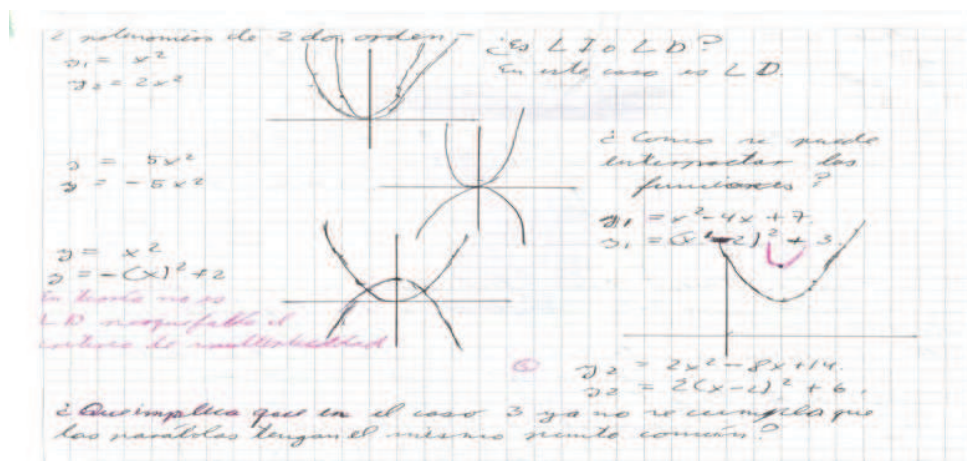 2 polinomios de 2do. orden -
y₁ = x²
y₂ = 2x²
¿Es L I o L D?
En este caso es L D.
y = 5x²
y = -5x²
¿Como se puede
interpretar las
funciones?
y₁ = x²-4x+7.
y₁ = (x-2)² + 3.
y = x²
y = -(x)²+2
En teoria no es
LD porque falla el
criterio de multiplicidad
y₂ = 2x²-8x+14.
y₂ = 2(x-2)² + 6.
¿Que implica que en el caso 3 ya no se cumpla que
las parábolas tengan el mismo punto común?